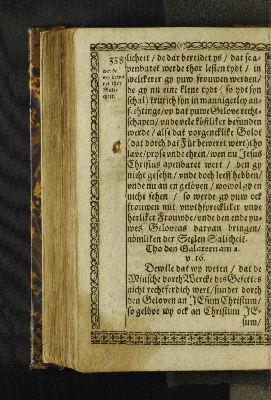 358
licheit / de dar bereidet ys / dat se a-
penbaret werde thor lesten tydt / in
welckerer gy yuw frouwen werden /
de gy nu eine kleine tydt ( so ydt syn
schal ) trurich syn in mannigerley an-
fechtinge / vp dat yuwe Gelove recht-
schapen / vnde vele köstliker befunden
werde / alse dat vorgencklike Goldt
(dat dorch dat Für beweret wert) tho
lave / pryse vnde ehren / wen nu Jesus
Christus apenbaret wert / den gy
nicht gesehn / vnde doch leeff hebben /
vnde nu an en gelöven / wowol gy en
nicht sehen / so werde gy yuw ock
frouwen mit vnuthspreckliker vnde
herliker Frouwde / vnde den ende yu-
wes Gelovens darvan bringen /
nömliken der Seelen Salicheit.
Tho den Galatern am 2.
v. 16.
Dewile dat wy weten / dat de
Minsche dorch Wercke des Gesettes
nicht rechtferdich wert / sunder dorch
den Geloven an JEsum Christum /
so gelöve wy ock an Christum JE-
sum /